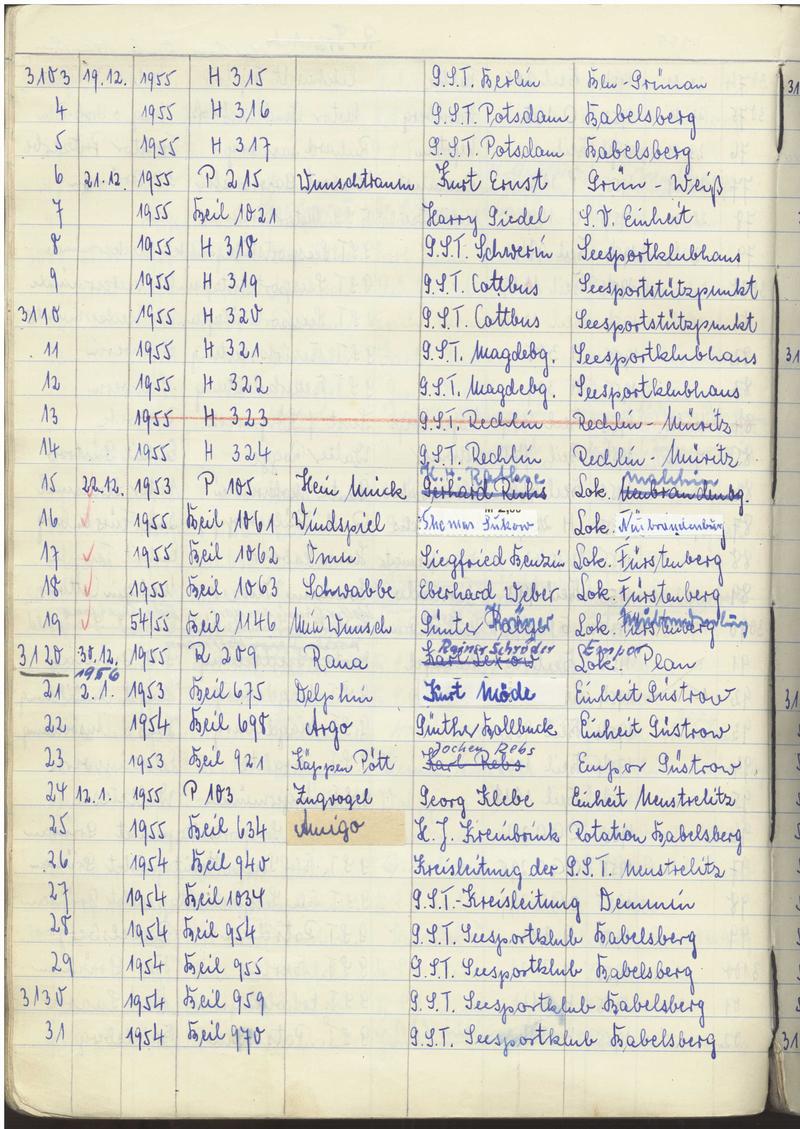 3103 19.12. 1955 H 315 G.S.T. Berlin Bln-Grünau
4 1955 H 316 G.S.T. Potsdam Babelsberg
5 1955 H 317 G.S.T. Potsdam Babelsberg
6 21.12. 1955 P 215 Wunschtraum Kurt Ernst Grün-Weiß
7 1955 Beil 1021 Harry Giedel S.V. Einheit
8 1955 H 318 G.S.T. Schwerin Seesportklubhaus
9 1955 H 319 G.S.T. Cottbus Seesportstützpunkt
3110 1955 H 320 G.S.T. Cottbus Seesportstützpunkt
11 1955 H 321 G.S.T. Magdebg. Seesportklubhaus
12 1955 H 322 G.S.T. Magdebg. Seesportklubhaus
13 1955 H 323 G.S.T. Rechlin Rechlin-Müritz
14 1955 H 324 G.S.T. Rechlin Rechlin-Müritz
Malchin
15 22.12. 1953 P 105 Hein Mück Gerhard Lok. Neubrandenbg.
16 1955 Beil 1061 Windspiel Thomas Lok. Neubrandenburg
17 1955 Beil 1062 Siegfried Lok. Fürstenberg
18 1955 Beil 1063 Schwabbe Eberhard Weber Lok. Fürstenberg
19 54/55 Beil 1146 Mein Wunsch Günter Krüger Lok.
Rainer Schröder Empor
3120 30.12. 1955 R 209 Rana Karl Lok. Plau
1956
21 2.1. 1953 Beil 675 Delphin Kurt Möde Einheit Güstrow
22 1954 Beil 698 Argo Günther Hollbuck Einheit Güstrow
Jochen Rebs
23 1953 Beil 921 Käppen Pött Karl Rebs Empor Güstrow
24 12.1. 1955 P 103 Zugvogel Georg Klebe Einheit Neustrelitz
25 1955 Beil 634 Amigo H. J. Kreinbrink Rotation Babelsberg
26 1954 Beil 940 Kreisleitung der G.S.T. Neustrelitz
27 1954 Beil 1034 G.S.T.-Kreisleitung Demmin
28 1954 Beil 954 G.S.T. Seesportklub Babelsberg
29 1954 Beil 955 G.S.T. Seesportklub Babelsberg
3130 1954 Beil 959 G.S.T. Seesportklub Babelsberg
31 1954 Beil 970 G.S.T. Seesportklub Babelsberg